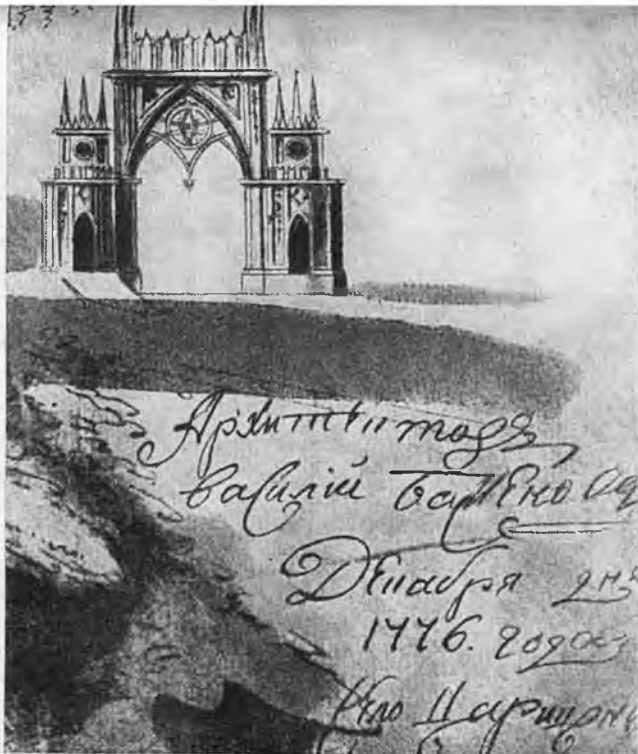 Архитекторъ
Василій Баженовъ
Декабря
1776. года
Село Царицын